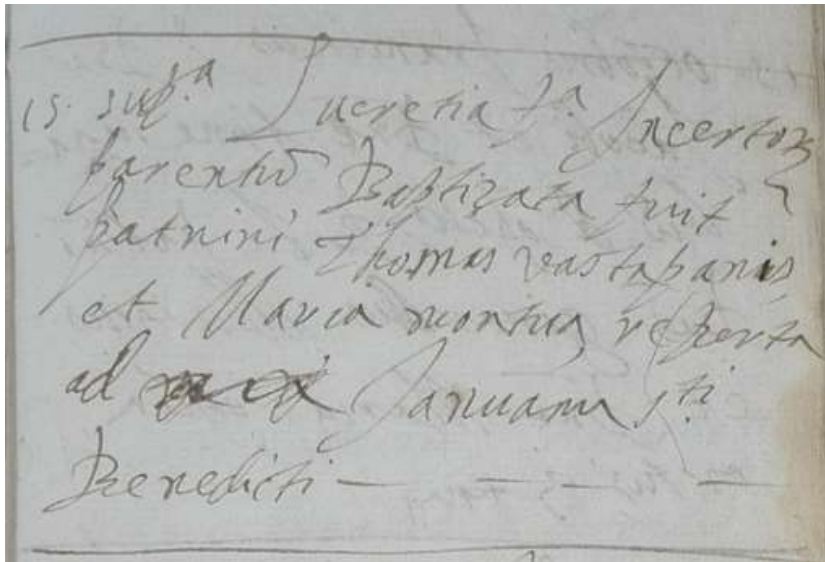 15. sup.ª Lucretia f.ª Incertoꝝ
parentū Baptizata fuit
patrini Thomas vastapanis
et Maria montis reperta
ad Januam s.ti
Benedicti — — — —